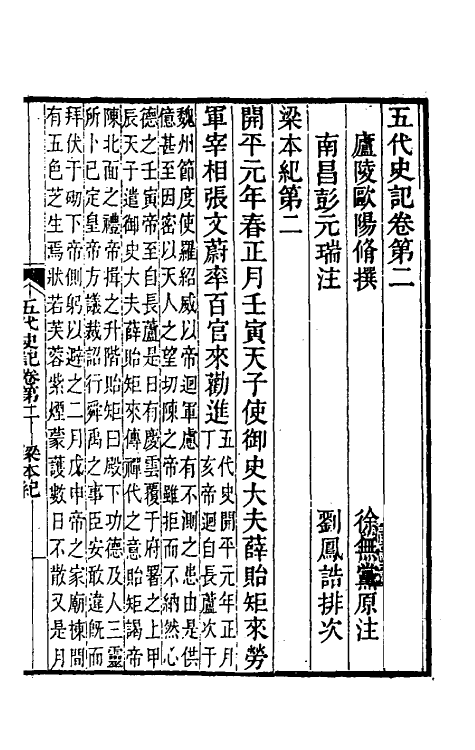 五代史記卷第二
廬陵歐陽脩撰　徐無黨原注
南昌彭元瑞注　劉鳳誥排次
梁本紀第二
開平元年春正月壬寅天子使御史大夫薛貽矩來勞
軍宰相張文蔚率百官來勸進
五代史開平元年正月
丁亥帝迴自長蘆次于
魏州節度使羅紹威以帝迴軍慮有不測之患由是供
億甚至因密以天人之望切陳之帝雖拒而不納然心
德之壬寅帝至自長蘆是日有慶雲覆于府署之上甲
辰天子遣御史大夫薛貽矩來傳禪代之意貽矩謁帝
陳北面之禮帝揖之升階貽矩曰殿下功德及人三靈
所卜已定皇帝方議裁詔行舜禹之事臣安敢違旣而
拜伏于砌下帝側躬以避之二月戊申帝之家廟棟間
有五色芝生焉狀若芙蓉紫煙蒙護數日不散又是月
五代史記卷第二　梁本紀　一